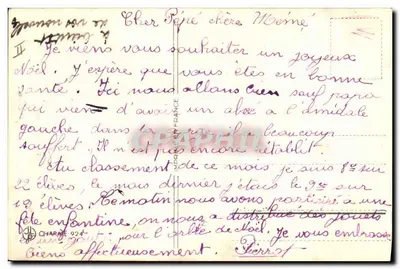 Cher Pépé chère Mémé
Je viens vous souhaiter un joyeux
Noël. J'espère que vous êtes en bonne
santé. Ici nous allons bien sauf papa
qui vient d'avoir un abcé a l'amidale
gauche dans la beaucoup
souffert. Il n'est pas encore rétablit
Au classement de ce mois je suis 8e sur
22 élèves, le mois dernier j'étais le 9e sur
élèves. Ce matin nous avons participé a une
fête enfantine, on nous a distribué des jouets
pour l'arbre de Noël. Je vous embrasse
biens affectueusement. Pierrot
à bientôt
de vos nouvelles
EN FRANCE